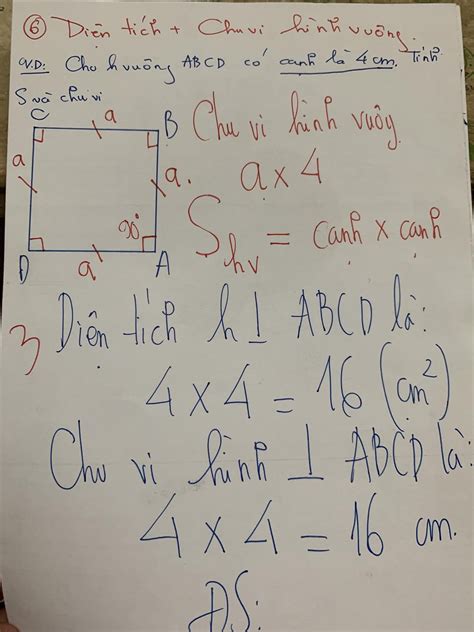 ⑥ Diện tích + Chu vi hình vuông.
V.D: Cho h vuông ABCD có cạnh là 4 cm. Tính
S và chu vi
C a B
a a.
90°
D a A
Chu vi hình vuông
a x 4
S hv = cạnh x cạnh
3 Diện tích h⊥ ABCD là:
4 x 4 = 16 (cm²)
Chu vi hình ⊥ ABCD là:
4 x 4 = 16 cm.
Đ.S: